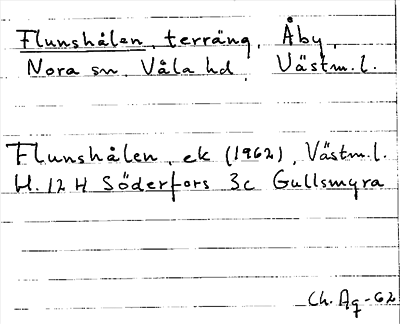 Flunshålen, terräng, Åby,
Nora sn, Våla hd, Västm.l.
Flunshålen, ek (1962), Västm.l.
H. 12 H Söderfors 3c Gullsmyra
Ch. Ag-62